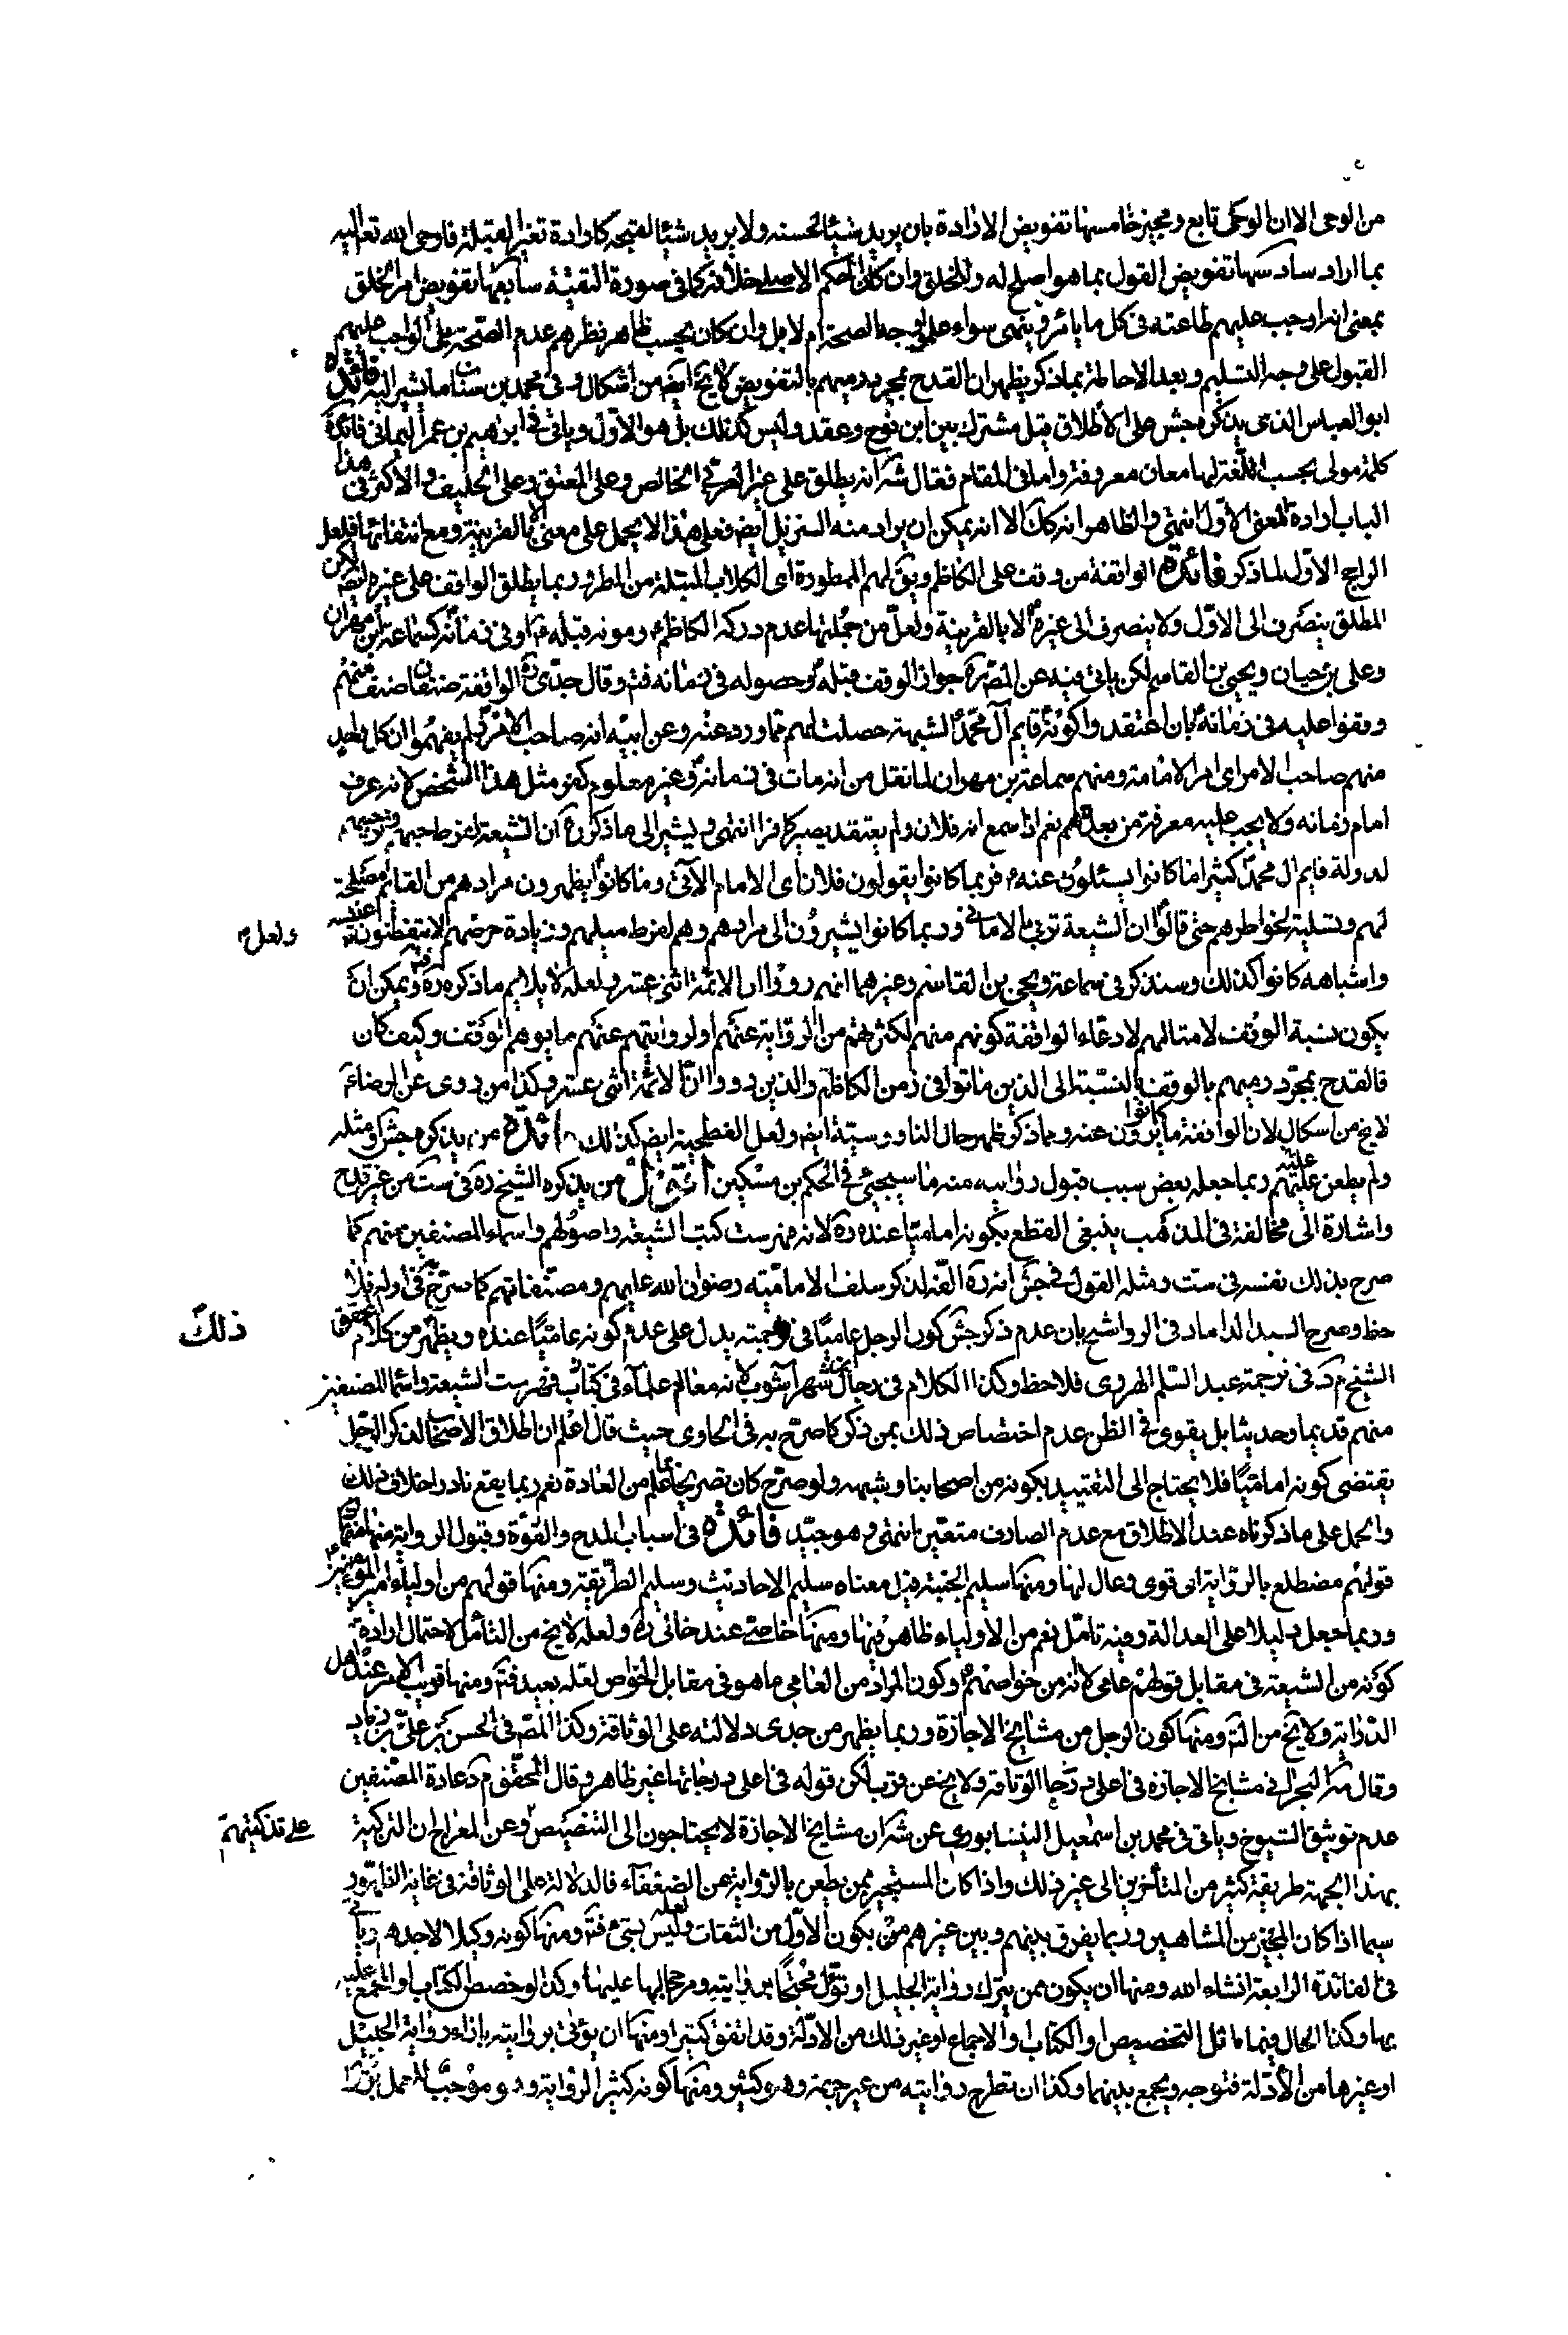 من الوحى الا ان الوحى تابع ومجيز خامسها تفويض الارادة بان يريد شيئا لحسنه ولا يريد شيئا لقبحه كارادة تغير القبلة فاوحى الله تعالى اليه
بما اراد سادسها تفويض القول بما هو اصلح له وللخلق وان كان الحكم الاصلى خلافه كما فى صورة التقية سابعها تفويض امر الخلق
بمعنى انه اوجب عليهم طاعته فى كل ما يامر وينهى سواء علموا وجه الصحة ام لا بل وان كان بحسب ظاهر نظرهم عدم الصحة بل الواجب عليهم
القبول على وجه التسليم وبعد الاحاطة بما ذكر يظهر ان القدح بمجرد رميهم بالتفويض لا يخ ايضا من اشكال وفى محمد بن سنان ما يشير اليه فائدة
ابو العباس الذى يذكره جش على الاطلاق قيل مشترك بين ابن نوح وعقده وليس كذلك بل هو الاول وياتى فى ابراهيم بن عمر اليمانى فائدة
كلمة مولى بحسب اللغة لها معان معروفة واما فى المقام فقال شه انه يطلق على غير العربى الخالص وعلى المعتق وعلى الحليف والاكثر فى هذا
الباب ارادة المعنى الاول انتهى والظاهر انه كك الا انه يمكن ان يراد منه النزيل ايضا فعلى هذا لا يحمل على معنى الا بالقرينة ومع انتفائها فلعل
الراجح الاول لما ذكر فائدة الواقفة من وقف على الكاظم ويق لهم الممطورة اى الكلاب المبتلة من المطر وربما يطلق الواقف على غيره ايضا لكن
المطلق ينصرف الى الاول ولا ينصرف الى غيره الا بالقرينة ولعل من جملتها عدم دركه الكاظم وموته قبله او فى زمانه كسماعة بن مهران
وعلى بن حيان ويحيى بن القاسم لكن ياتى فيه عن المصره جواز الوقف قبله وحصوله فى زمانه فتم وقال جدى ره الواقفة صنفان صنف منهم
وقفوا عليه فى زمانه بان اعتقدوا كونه قايم آل محمد لشبهة حصلت لهم مما ورد عنه وعن ابيه انه صاحب الامر ولم يفهموا ان كل واحد
منهم صاحب الامر اى امر الامامة ومنهم سماعة بن مهران لما نقل من انه مات فى زمانه وغير معلوم كفر مثل هذا الشخص لانه عرف
امام زمانه ولا يجب عليه معرفة من بعدهم نعم اذا سمع انه فلان ولم يعتقد يصير كافرا انتهى ويشير الى ما ذكر ره ان الشيعة لفرط حبهم وترجيهم
لدولة قايم ال محمد كثيرا ما كانوا يسئلون عنه فربما كانوا يقولون فلان اى الامام الآتى وما كانوا يظهرون مرادهم من القائم مصلحة
لهم وتسلية لخواطرهم حتى قالوا ان الشيعة تربى بالامانى وربما كانوا يشيرون الى مرادهم وهم لفرط ميلهم وزيادة حرصهم لا يتفطنون عنبسه
ولعل
واشباهه كانوا كذلك وسنذكر فى سماعة ويحيى بن القاسم وغيرهما انهم رووا ان الائمة اثنى عشر ولعله لا يلايم ما ذكره ره ويمكن ان
يكون نسبة الوقف لامثالهم لادعاء الواقفة كونهم منهم لكثرتهم من الرواية عنهم او لروايتهم عنهم ما يوهم الوقف وكيف كان
فالقدح بمجرد رميهم بالوقف بالنسبة الى الذين ماتوا فى زمن الكاظم والذين رووا ان الائمة اثنى عشر وكذا من روى عن الرضاء
لا يخ من اشكال لان الواقفة ما كانوا يروون عنه ومما ذكر ظهر حال الناووسية ايضا ولعل الفطحية ايضا كذلك فائدة من يذكره جش او مثله
ولم يطعن عليه ربما جعله بعض سبب قبول روايته منه ما سيجيئ فى الحكم بن مسكين اقول من يذكره الشيخ ره فى ست من غير قدح
واشارة الى مخالفة فى المذهب ينبغى القطع بكونه اماميا عنده ره لانه فهرست كتب الشيعة واصولهم واسماء المصنفين منهم كما
صرح بذلك نفسه فى ست ومثله القول فى جش انه ره الفه لذكر سلف الامامية رضوان الله عليهم ومصنفاتهم كما صرح به فى اوله فلا
حظ وصرح السيد الداماد فى الرواشح بان عدم ذكر جش كون الرجل عاميا فى ترجمته يدل على عدم كونه عاميا عنده ويظهر من كلام المحقق
ذلك
الشيخ م د فى ترجمة عبد السلم الهروى فلاحظ وكذا الكلام فى رجال ابن شهرآشوب لانه معالم علماء فى كتاب فهرست الشيعة واسماء المصنفين
منهم قديما وحديثا بل يقوى فى الظن عدم اختصاص ذلك بمن ذكر كما صرح به فى الحاوى حيث قال اعلم ان اطلاق الاصحاب لذكر الرجل
يقتضى كونه اماميا فلا يحتاج الى التقييد بكونه من اصحابنا وشبهه ولو صرح كان تصريحا بما علم من العادة نعم ربما يقع نادرا خلاف ذلك
والحمل على ما ذكرناه عند الاطلاق مع عدم الصارف متعين انتهى وهو جيد فائدة فى اسباب المدح والقوة وقبول الرواية منها
قولهم مضطلع بالرواية اى قوى وعال لها ومنها سليم الجنبة قيل معناه سليم الاحاديث وسليم الطريقة ومنها قولهم من اولياء امير المؤمنين
وربما جعل دليلا على العدالة وفيه تامل نعم من الاولياء ظاهر فيها ومنها خاصى عند خالى ره ولعله لا يخ من التامل لاحتمال ارادة
كونه من الشيعة فى مقابل قولهم عامى لا انه من خواصهم وكون المراد من العامى ما هو فى مقابل الخواص لعله بعيد فتم ومنها قريب الامر عند اهل
الدراية ولا يخ من التم ومنها كون الرجل من مشايخ الاجازة وربما يظهر من جدى دلالته على الوثاقة وكذا المص فى الحسن بن على بن زياد
وقال م البحرانى مشايخ الاجازه فى اعلى درجات الوثاقة ولا يخ عن قرب لكن قوله فى اعلى درجاتها غير ظاهر وقال المحقق م د عادة المصنفين
عدم توثيق الشيوخ وياتى فى محمد بن اسمعيل النيسابورى عن شه ان مشايخ الاجازة لا يحتاجون الى التنصيص وعن المعراج ان التزكية
على تزكيتهم
بهذا الجهة طريقة كثير من المتأخرين الى غير ذلك واذا كان المستجيز ممن يطعن بالرواية عن الضعفاء فالدلالة على الوثاقة فى غاية الظهور
سيما اذا كان المجيز من المشاهير وربما يفرق بينهم وبين غيرهم ممن يكون الاول من الثقات ولعله ليس بشئ فتم ومنها كونه وكيلا لاحدهم وياتى
فى الفائدة الرابعة انشاء الله ومنها ان يكون ممن يترك رواية الجليل او تؤل محتجا بروايته ومرجحا لها عليها وكذا لو خصص الكتاب او المجمع عليه
بها وكذا الحال فيما ماثل التخصيص او الكتاب او الاجماع او غير ذلك من الادلة وقد اتفق كثيرا ومنها ان يؤتى بروايته بازاء رواية الجليل
او غيرها من الادلة فتوجه ويجمع بينهما وكذا ان تطرح روايته من غير جهته وهو كثير ومنها كونه كثير الرواية وهو موجب للعمل